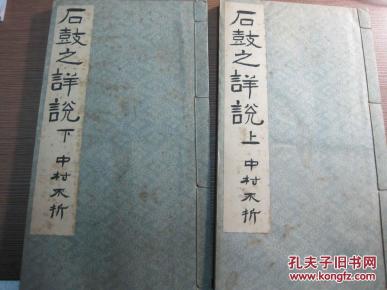 石鼓之詳說 上 中村不折
石鼓之詳說 下 中村不折
孔夫子旧书网